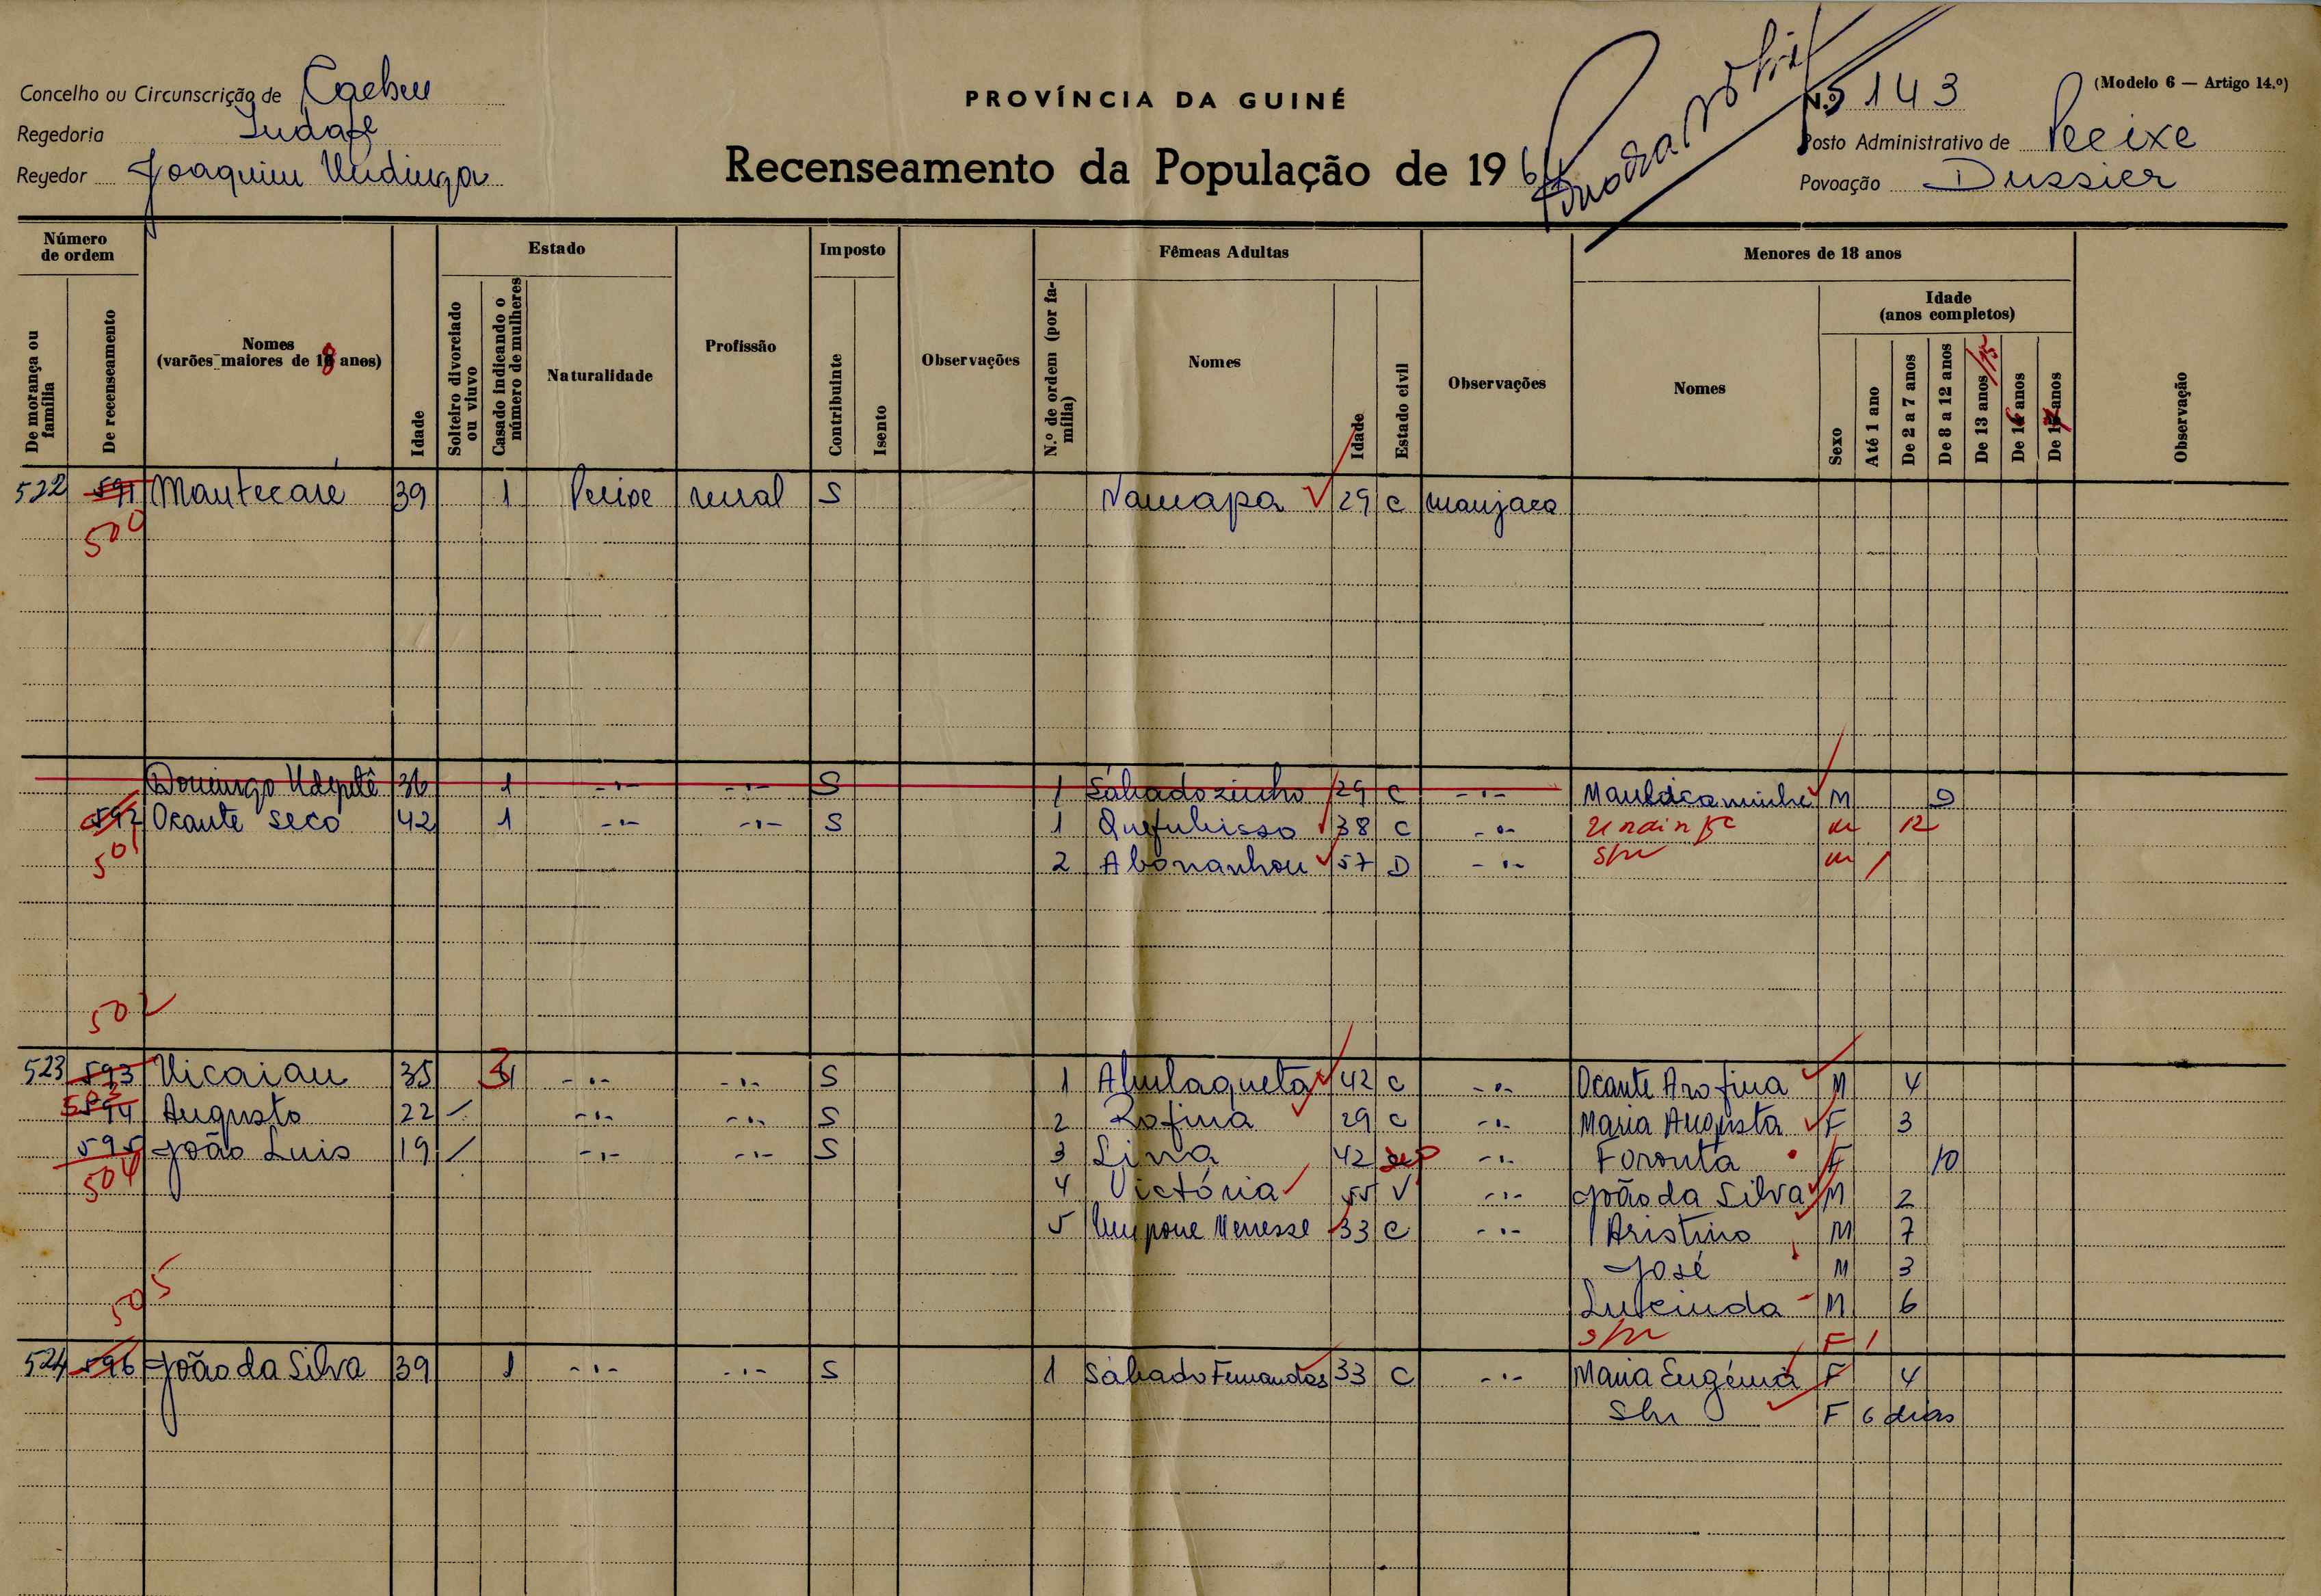 Concelho ou Circunscrição de Cacheu
PROVÍNCIA DA GUINÉ
N.º 5143
(Modelo 6 — Artigo 14.º)
Regedoria
Posto Administrativo de Peixe
Regedor Joaquim
Recenseamento da População de 196
Povoação Dussier
Número de ordem
De morança ou família
De recenseamento
Nomes (varões maiores de 18 anos)
Idade
Estado
Solteiro divorciado ou viuvo
Casado indicando o número de mulheres
Naturalidade
Profissão
Imposto
Contribuinte
Isento
Observações
Fêmeas Adultas
N.º de ordem (por família)
Nomes
Idade
Estado civil
Observações
Menores de 18 anos
Nomes
Idade (anos completos)
Sexo
Até 1 ano
De 2 a 7 anos
De 8 a 12 anos
De 13 anos /15
De 16 anos
De 17 anos
Observação
522 591 Mantecare 39 1 Peixe rural S Namapa 29 C manjaco
500
Domingo 36 1 -"- -"- S 1 Sábadozinho 29 C -"- M 9
592 Ocante Seco 42 1 -"- -"- S 1 Quefubisso 38 C -"- m 12
501 2 Abonanhou 57 D -"- s/n m 1
502
523 593 Vicaiau 35 3 -"- -"- S 1 Abulaqueta 42 C -"- Ocante Arofina M 4
503 594 Augusto 22 / -"- -"- S 2 Rofina 29 C -"- Maria Augusta F 3
595 João Luis 19 / -"- -"- S 3 Lina 42 sep -"- Foronta F 10
504 4 Victória 55 V -"- João da Silva M 2
5 33 C -"- Aristino M 7
José M 3
505 Lucinda M 6
s/n F 1
524 596 João da Silva 39 1 -"- -"- S 1 Sábado Fernandes 33 C -"- Maria Eugénia F 4
S/n F 6 dias